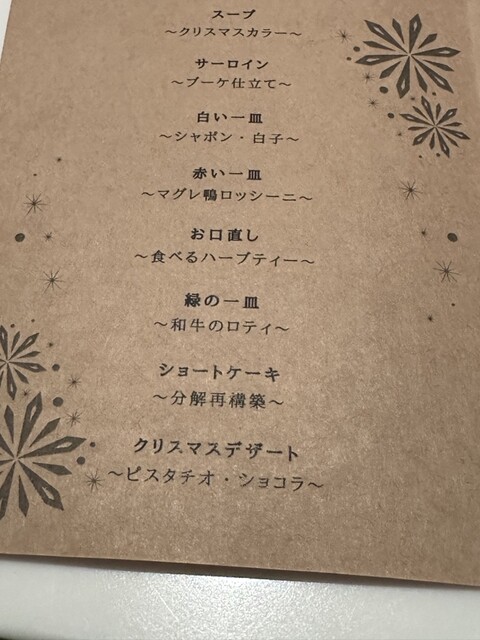 スープ
～クリスマスカラー～
サーロイン
～ブーケ仕立て～
白い一皿
～シャボン・白子～
赤い一皿
～マグレ鴨ロッシーニ～
お口直し
～食べるハーブティー～
緑の一皿
～和牛のロティ～
ショートケーキ
～分解再構築～
クリスマスデザート
～ピスタチオ・ショコラ～